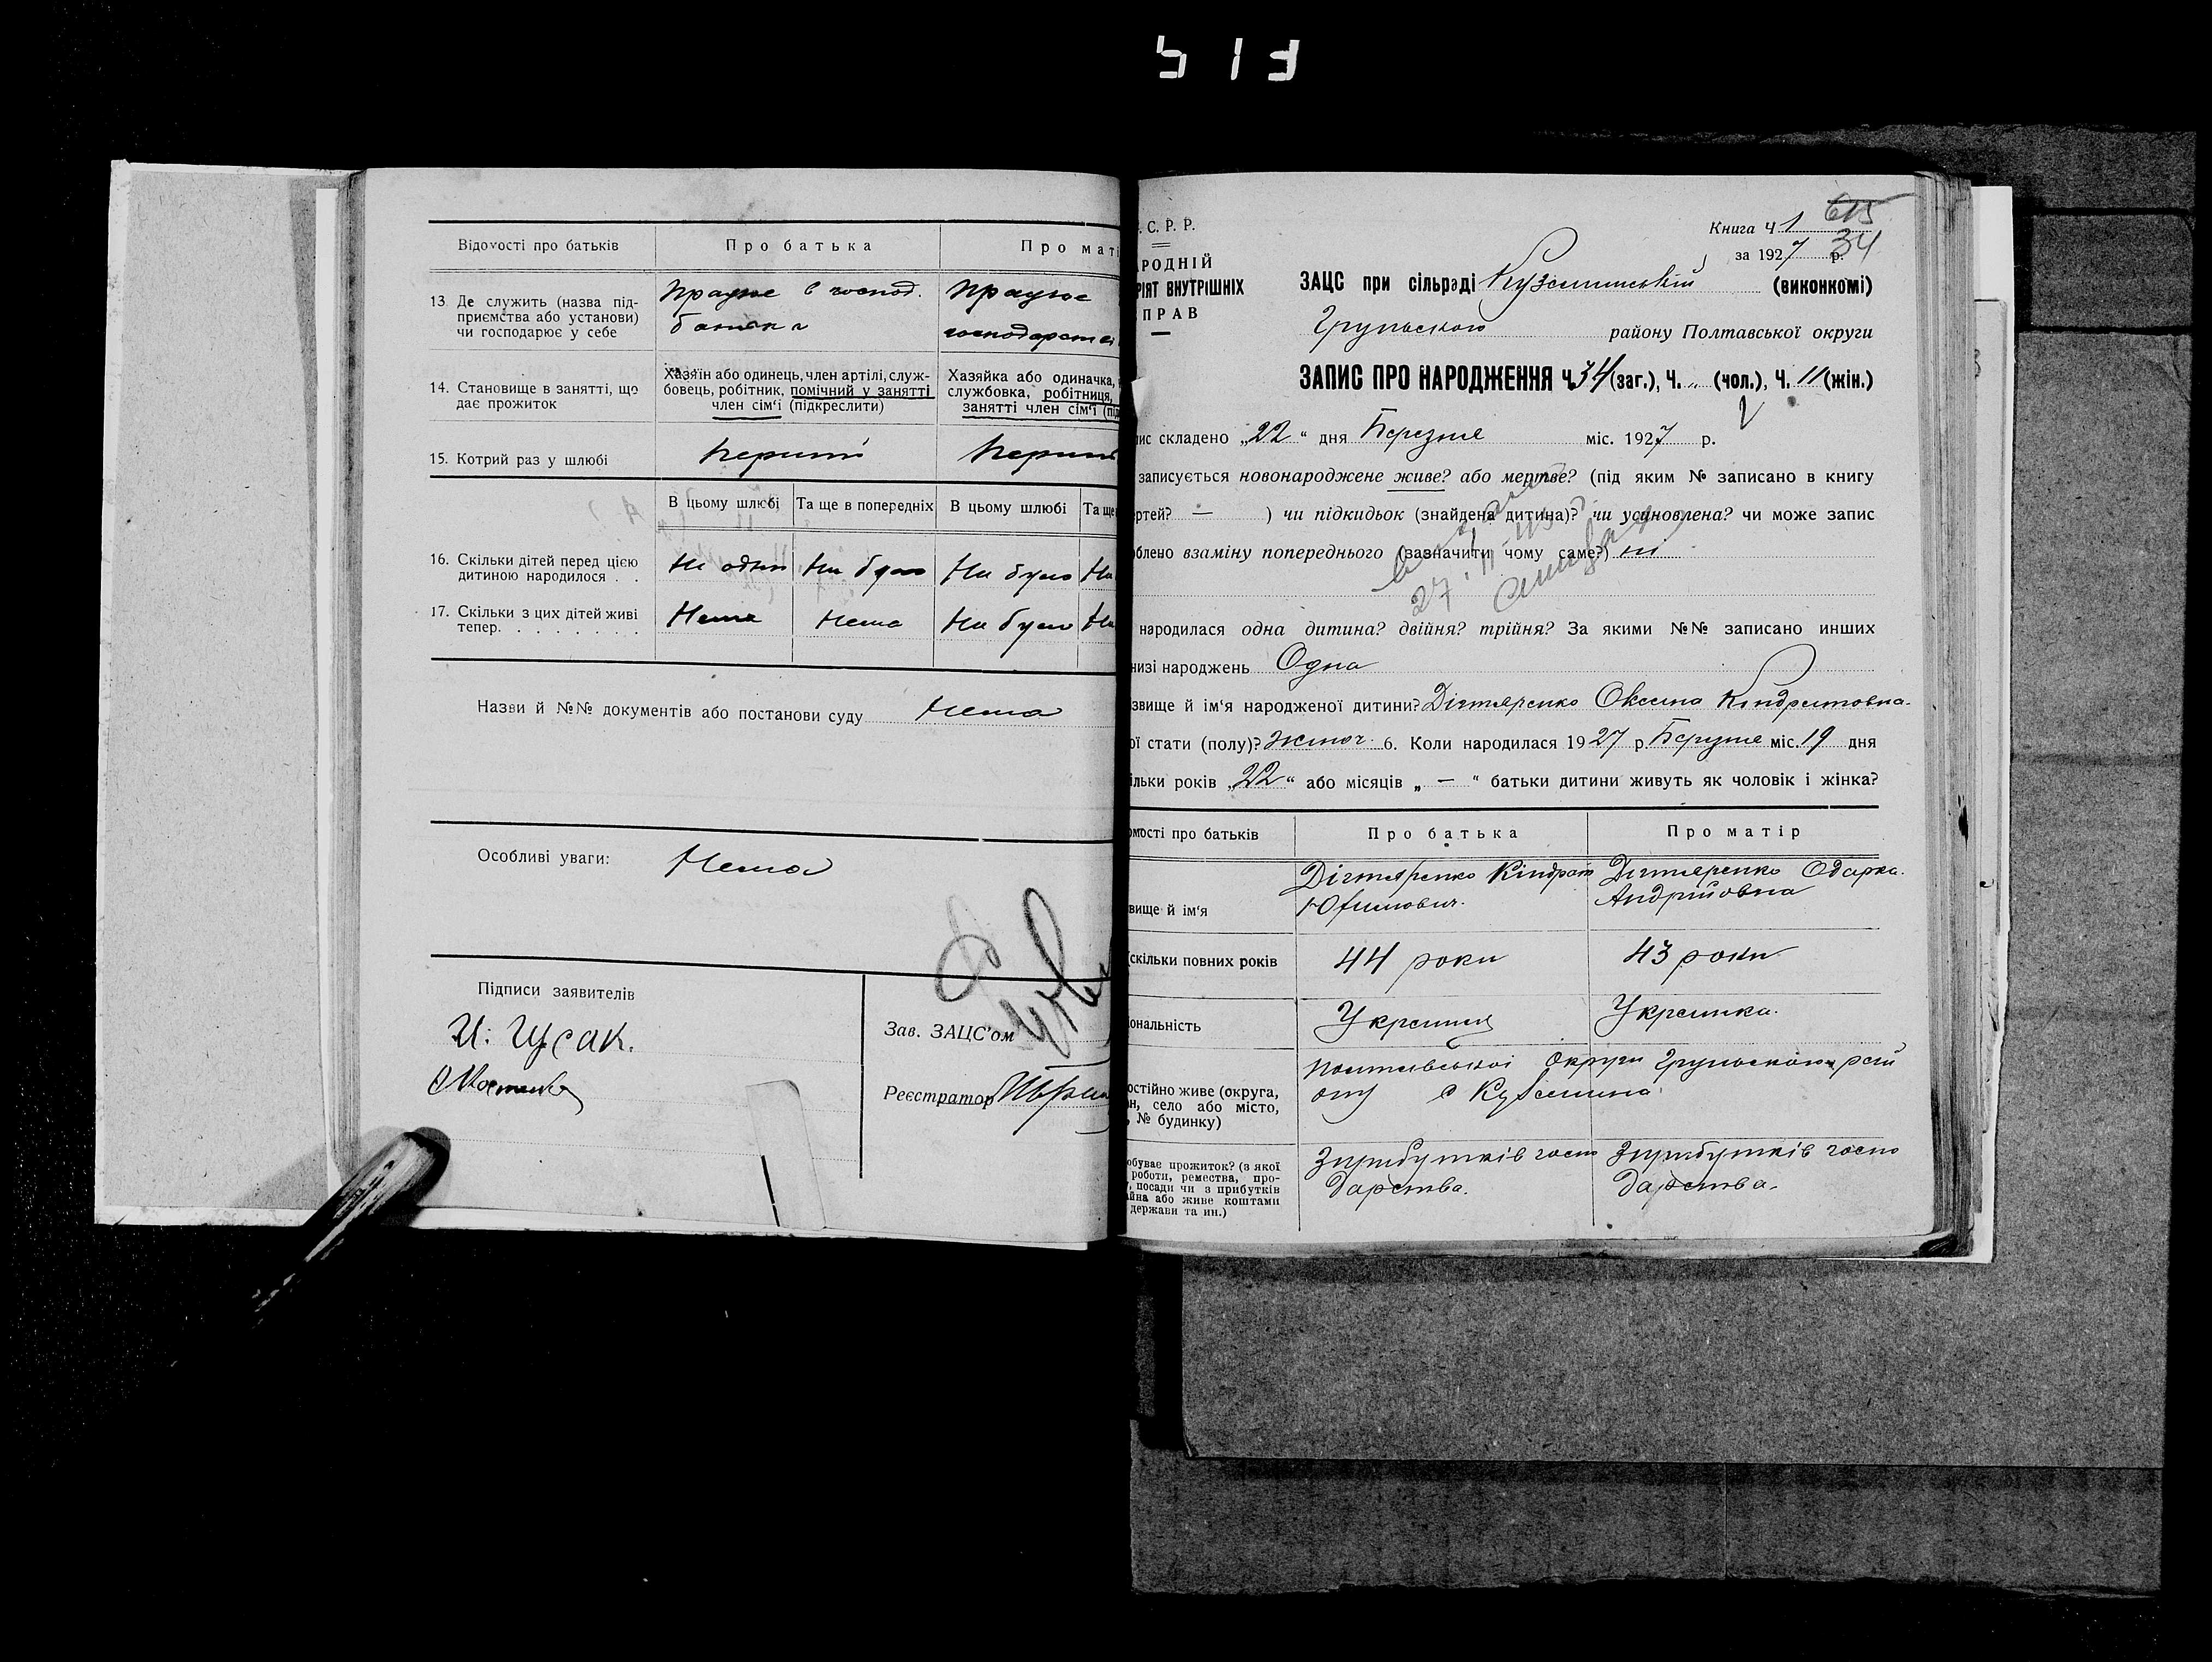 Відомості про батьків
Про батька
Про маті
13. Де служить (назва під-
приємства або установи)
чи господарює у себе
працює в господ.
батька
працює
господарстві
14. Становище в занятті, що
дає прожиток
Хазяїн або одинець, член артілі, служ-
бовець, робітник, помічний у занятті
член сім'ї (підкреслити)
Хазяйка або одиначка,
службовка, робітниця,
занятті член сім'ї (під
15. Котрий раз у шлюбі
перший
перший
В цьому шлюбі
Та ще в попередніх
В цьому шлюбі
Та ще
16. Скільки дітей перед цією
дитиною народилося . .
Ні один
Не було
Не було
Не
17. Скільки з цих дітей живі
тепер. . . . . . . .
Нема
Нема
Не було
Не
Назви й №№ документів або постанови суду Нема
Особливі уваги: Нема
Підписи заявителів
И. Гусак.
Зав. ЗАЦС'ом
Реєстратор
. С. Р. Р.
РОДНІЙ
РІЯТ ВНУТРІШНІХ
ПРАВ
Книга Ч 1
615
за 1927 р.
34
ЗАЦС при сільраді Кузєминській (виконкомі)
Грунського району Полтавської округи
ЗАПИС ПРО НАРОДЖЕННЯ Ч. 34 (заг.), Ч. „ (чол.), Ч. 11 (жін.)
ис складено „22“ дня Березня міс. 1927 р.
записується новонароджене живе? або мертве? (під яким № записано в книгу
ртей? — ) чи підкидьок (знайдена дитина)? чи усиновлена? чи може запис
облено взаміну попереднього (зазначити чому саме?) ні
народилася одна дитина? двійня? трійня? За якими №№ записано инших
низі народжень Одна
звище й ім'я народженої дитини? Дігтяренко Оксана Кіндратовна.
ої стати (полу)? жіноч. 6. Коли народилася 1927 р. Березня міс. 19 дня
ільки років „22“ або місяців „ — “ батьки дитини живуть як чоловік і жінка?
омості про батьків
Про батька
Про матір
звище й ім'я
Дігтяренко Кіндрат
Юхимович.
Дігтяренко Одарка.
Андрійовна
скільки повних років
44 роки
43 роки
іональність
Українец
Українка.
остійно живе (округа,
н, село або місто,
, № будинку)
Полтавської округи Грунського рай
ону с Куземина
обуває прожиток? (з якої
роботи, ремества, про-
, посади чи з прибутків
айна або живе коштами
держави та ин.)
З прибутків госпо
дарства.
З прибутків госпо
дарства.